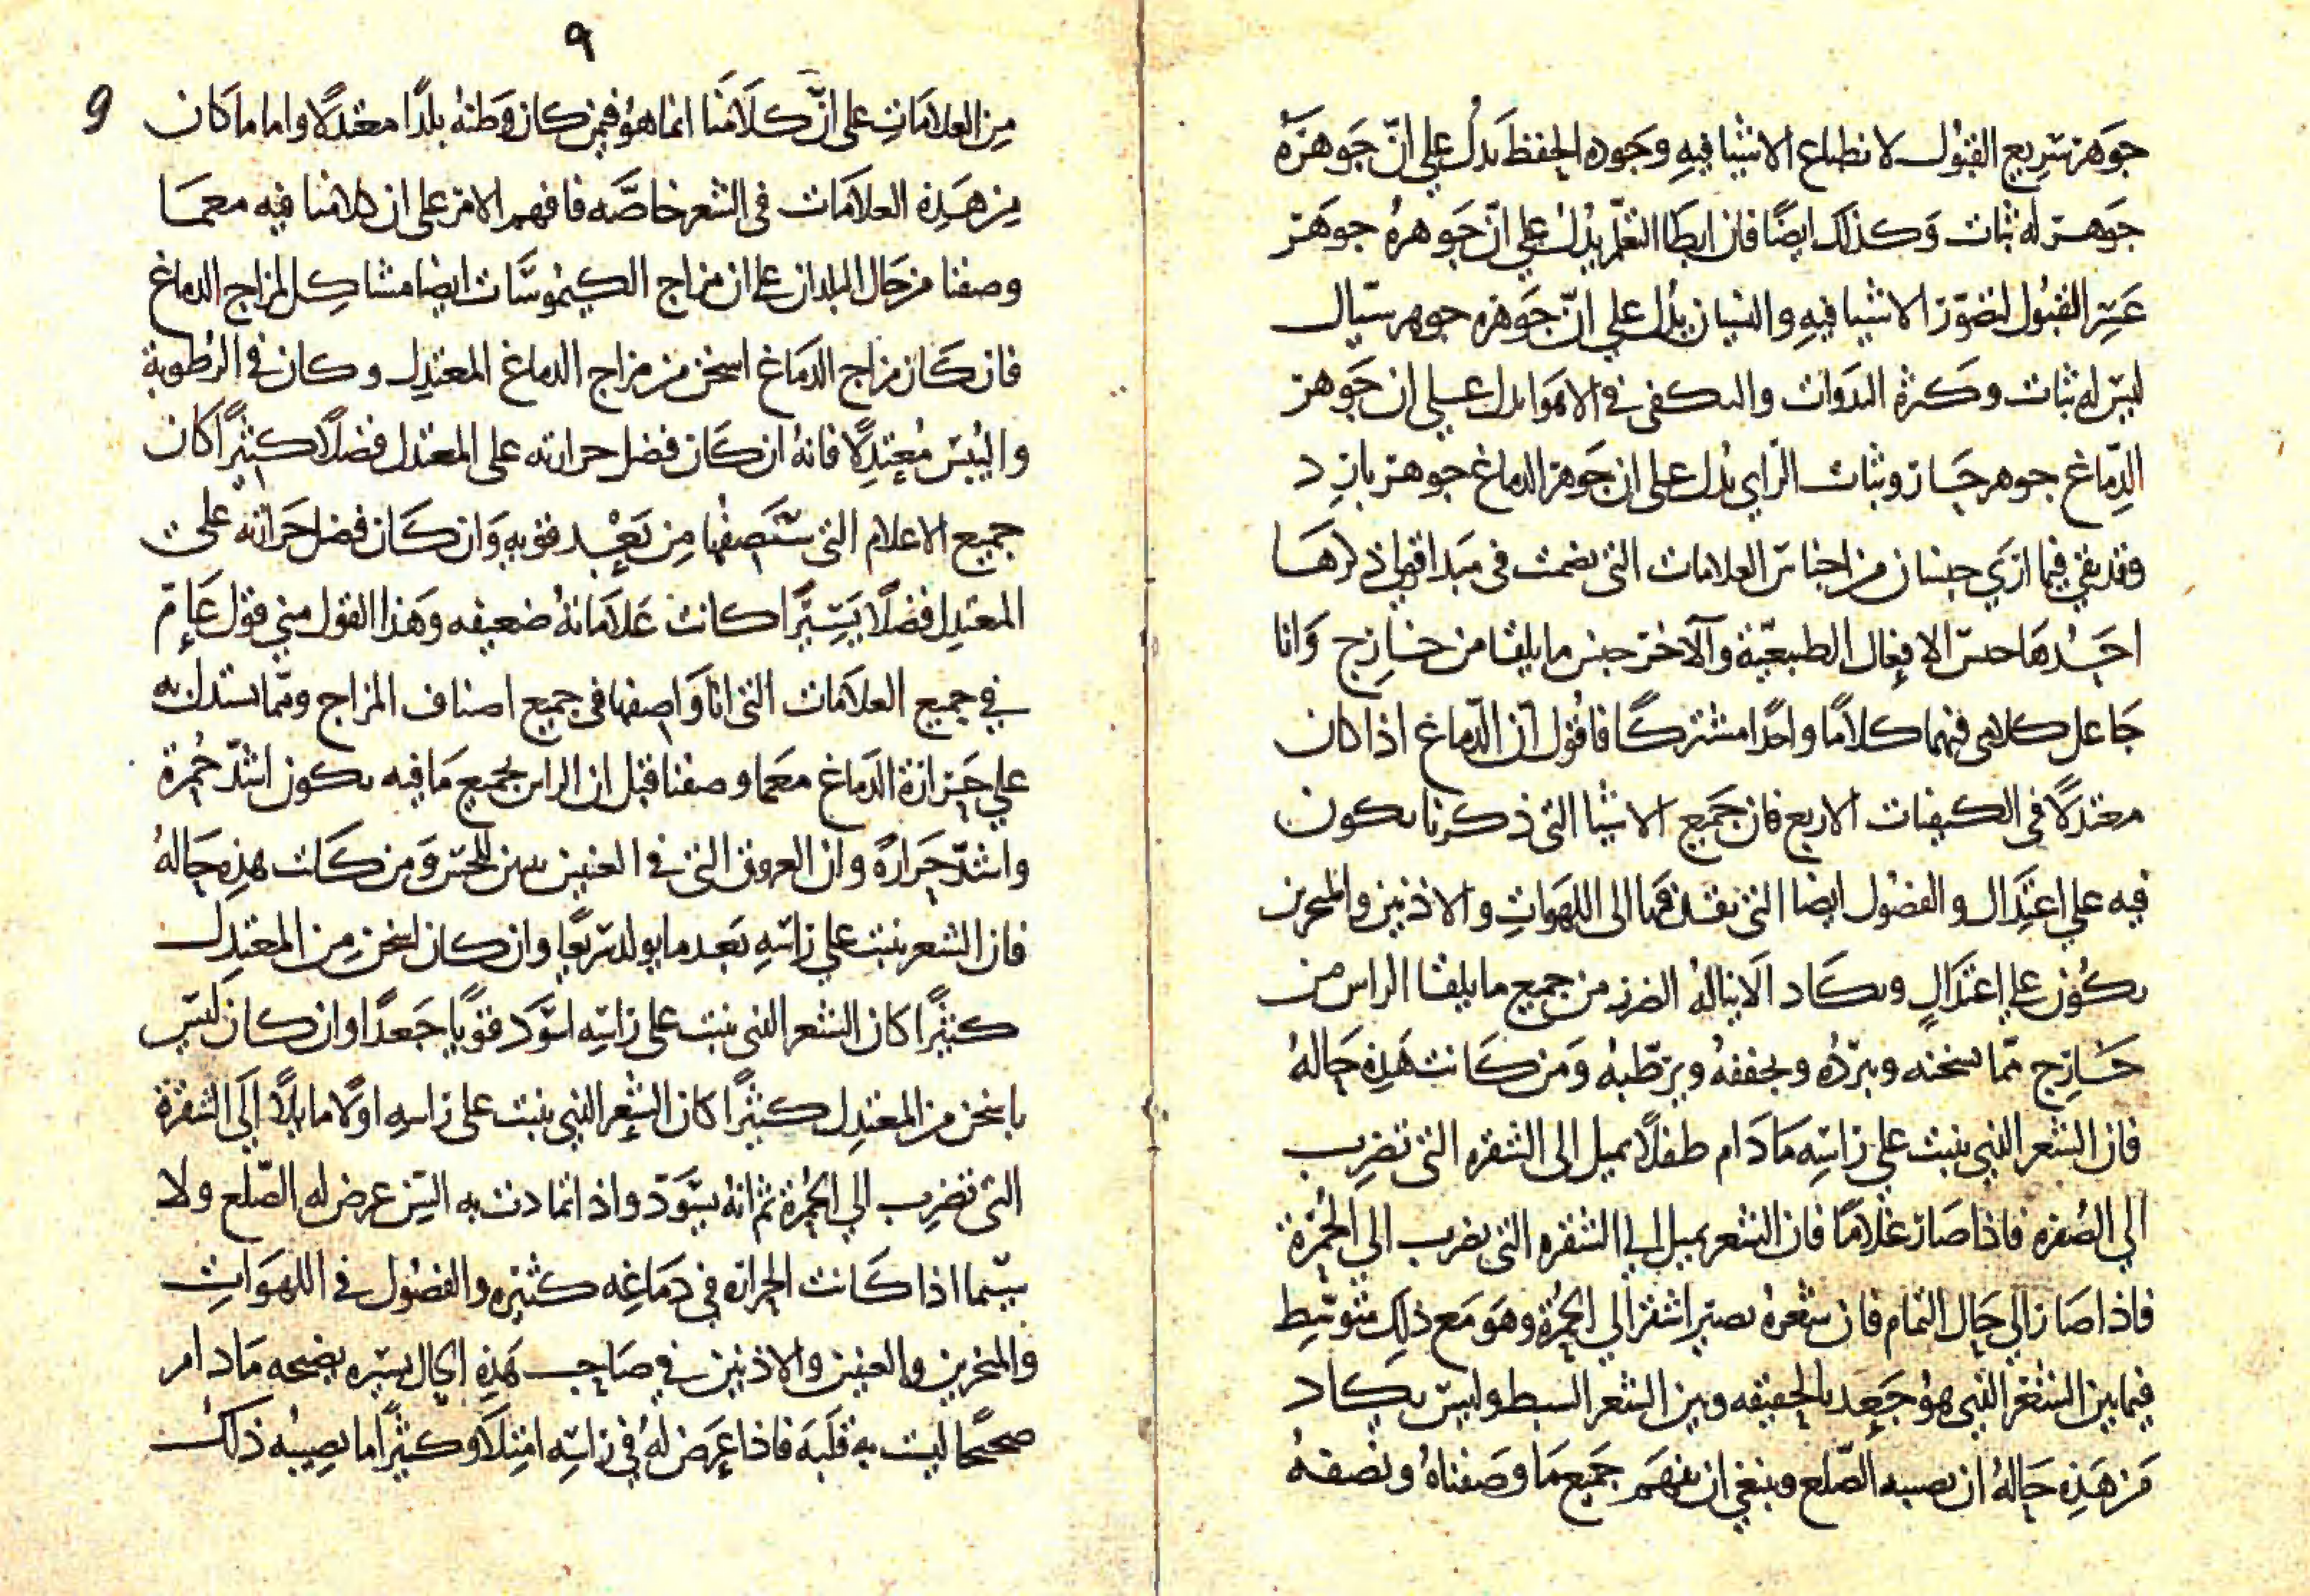 جوهر سريع القبول لانطباع الاشيا فيه وجوده الحفظ يدل على انّ جوهره
جوهر له ثبات وكذلك ايضًا فان ابطا التعلّم يدل على انّ جوهره جوهر
عسر القبول لتصوّر الاشيا فيه والنسيان يدل على انّ جوهره جوهر سيال
ليس له ثبات وكثرة البدوات والتكفى في الاهوا يدل على ان جوهر
الدّماغ جوهر حار وثبات الراي يدل على ان جوهر الدماغ جوهر بارد
وقد بقي فيما ارى جنسان من اجناس العلامات التى ضمنت فى مبدا قولي ذكرها
احدها جنس الافعال الطبيعيّة والآخر جنس ما يلقا من خارج وانا
جاعل كلامى فيهما كلامًا واحدًا مشتركًا فاقول ان الدّماغ اذا كان
معتدلًا فى الكيفيات الاربع فان جميع الاشيا التى ذكرنا يكون
فيه على اعتدال والفضول ايضا التى يقذفها الى اللهوات والاذنين والمنخرين
يكون على اعتدالٍ ويكاد الّا يناله الضرر من جميع ما يلقا الراس من
خارج مّما يسخنه ويبرّده ويجففه ويرطّبه ومن كانت هذه حاله
فان الشعر الذي ينبت على راسه مادام طفلًا يميل الى الشقره التى تضرب
الى الصفره فاذا صار غلامًا فان الشعر يميل الى الشقره التى تضرب الى الحمرة
فاذا صار الى حال التمام فان شعره يصير اشقر الى الحمرة وهو مع ذلك متوسّط
فيما بين الشعر الذي هو جعد بالحقيقه وبين الشعر السبط وليس يكاد
من هذه حاله ان يصيبه الصّلع وينبغي ان يفهم جميع ما وصفناه ونصفه
٩
9
من العلامات على انّ كلامنا انما هو فيمن كان وطنه بلدًا معتدلًا واما ما كان
من هذه العلامات فى الشعر خاصّه فافهم الامر على ان كلامنا فيه مع ما
وصفنا من حال البلدان على ان مزاج الكيموسات ايضا مشاكل لمزاج الدماغ
فان كان مزاج الدماغ اسخن من مزاج الدماغ المعتدل وكان فى الرطوبة
واليبس معتدلًا فانه ان كان فضل حرارته على المعتدل فضلًا كثيرًا كان
جميع الاعلام التى ستصفها من بعد قويه وان كان فضل حرارته على
المعتدل فضلًا يسيرًا كانت علاماته ضعيفه وهذا القول منى قول عام
في جميع العلامات التى انا واصفها فى جميع اصناف المزاج ومّما يستدل به
على حرارة الدماغ مع ما وصفنا قبل ان الراس بجميع ما فيه يكون اشدّ حمرة
واشدّ حرارة وان العروق التى فى العينين تبين للحس ومن كانت هذه حاله
فان الشعر ينبت على راسه بعد ما يولد سريعًا وان كان اسخن من المعتدل
كثيرًا كان الشعر الذي ينبت على راسه اسود قويًا جعدًا وان كان ليس
باسخن من المعتدل كثيرًا كان الشعر الذي ينبت على راسه اولًا مايلًا الى الشقرة
التى تضرب الى الحمرة ثم انه يسودّ واذا تمادت به السن عرض له الصّلع ولا
سيّما اذا كانت الحراره في دماغه كثيره والفضول فى اللهوات
والمنخرين والعينين والاذنين في صاحب هذه الحال يسيره نضيجه مادام
صحيحًا ليست به قلبه فاذا عرض له في راسه امتلا وكثيرًا ما يصيبه ذلك